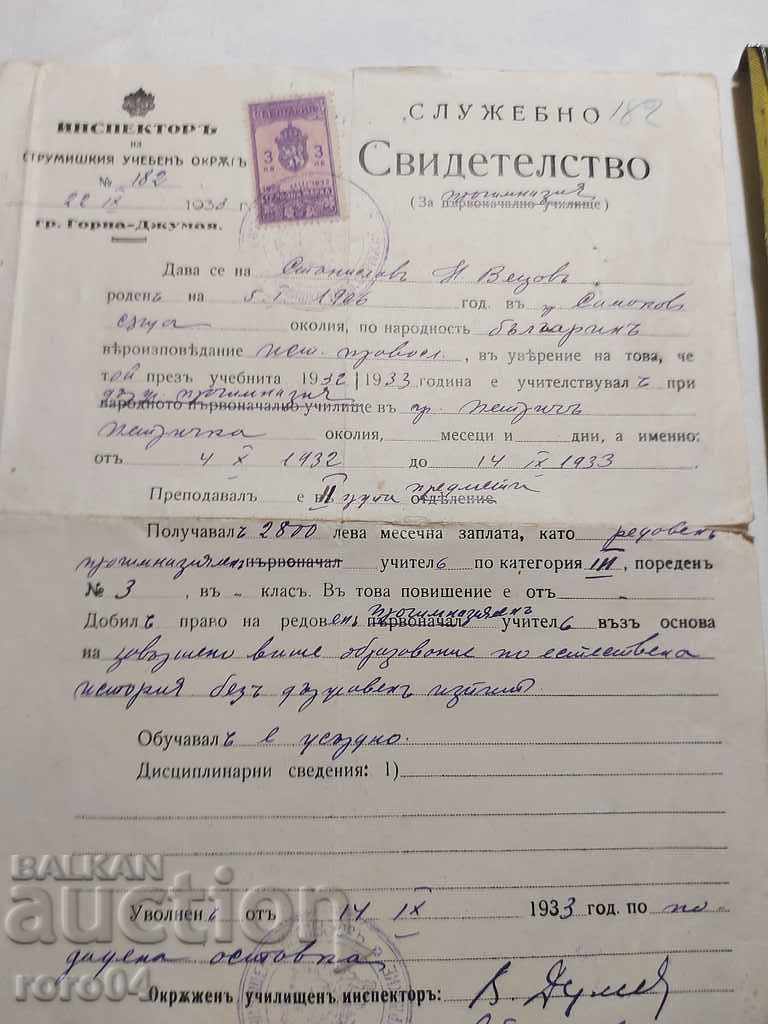 ИНСПЕКТОРЪ
на
СТРУМИШКИЯ УЧЕБЕНЪ ОКРѪГЪ
№ 182
22 IX 1933 г.
гр. Горна-Джумая.
БЪЛГАРИЯ
3 3
лв лв
182
СЛУЖЕБНО
Свидетелство
прогимназия
(За първоначално училище)
Дава се на Станиславъ Н. Вецовъ
роденъ на 5. I 1906 год. въ гр. Самоков
сѫща околия, по народность българинъ
вѣроизповѣдание изт. правосл., въ уверение на това, че
той презъ учебнита 1932 | 1933 година е учителствувалъ при
държ. прогимназия
народното първоначално училище въ гр. Петричъ
Петричка околия, месеци и дни, а именно:
отъ 4 X 1932 до 14 IX 1933
Преподавалъ е въ II група предмети отдѣление.
Получавалъ 2800 лева месечна заплата, като редовенъ
прогимназиаленъ първоначал учитель по категория III, пореденъ
№ 3, въ - класъ. Въ това повишение е отъ
Добилъ право на редовен. прогимназиаленъ първоначал. учитель възъ основа
на завършено висше образование по естествена
история безъ държавенъ изпит
Обучавалъ е усърдно.
Дисциплинарни сведения: 1)
Уволненъ отъ 14 IX 1933 год. по по
дадена оставка
Окрѫженъ училищенъ инспекторъ:
BALKAN
auction
roro04